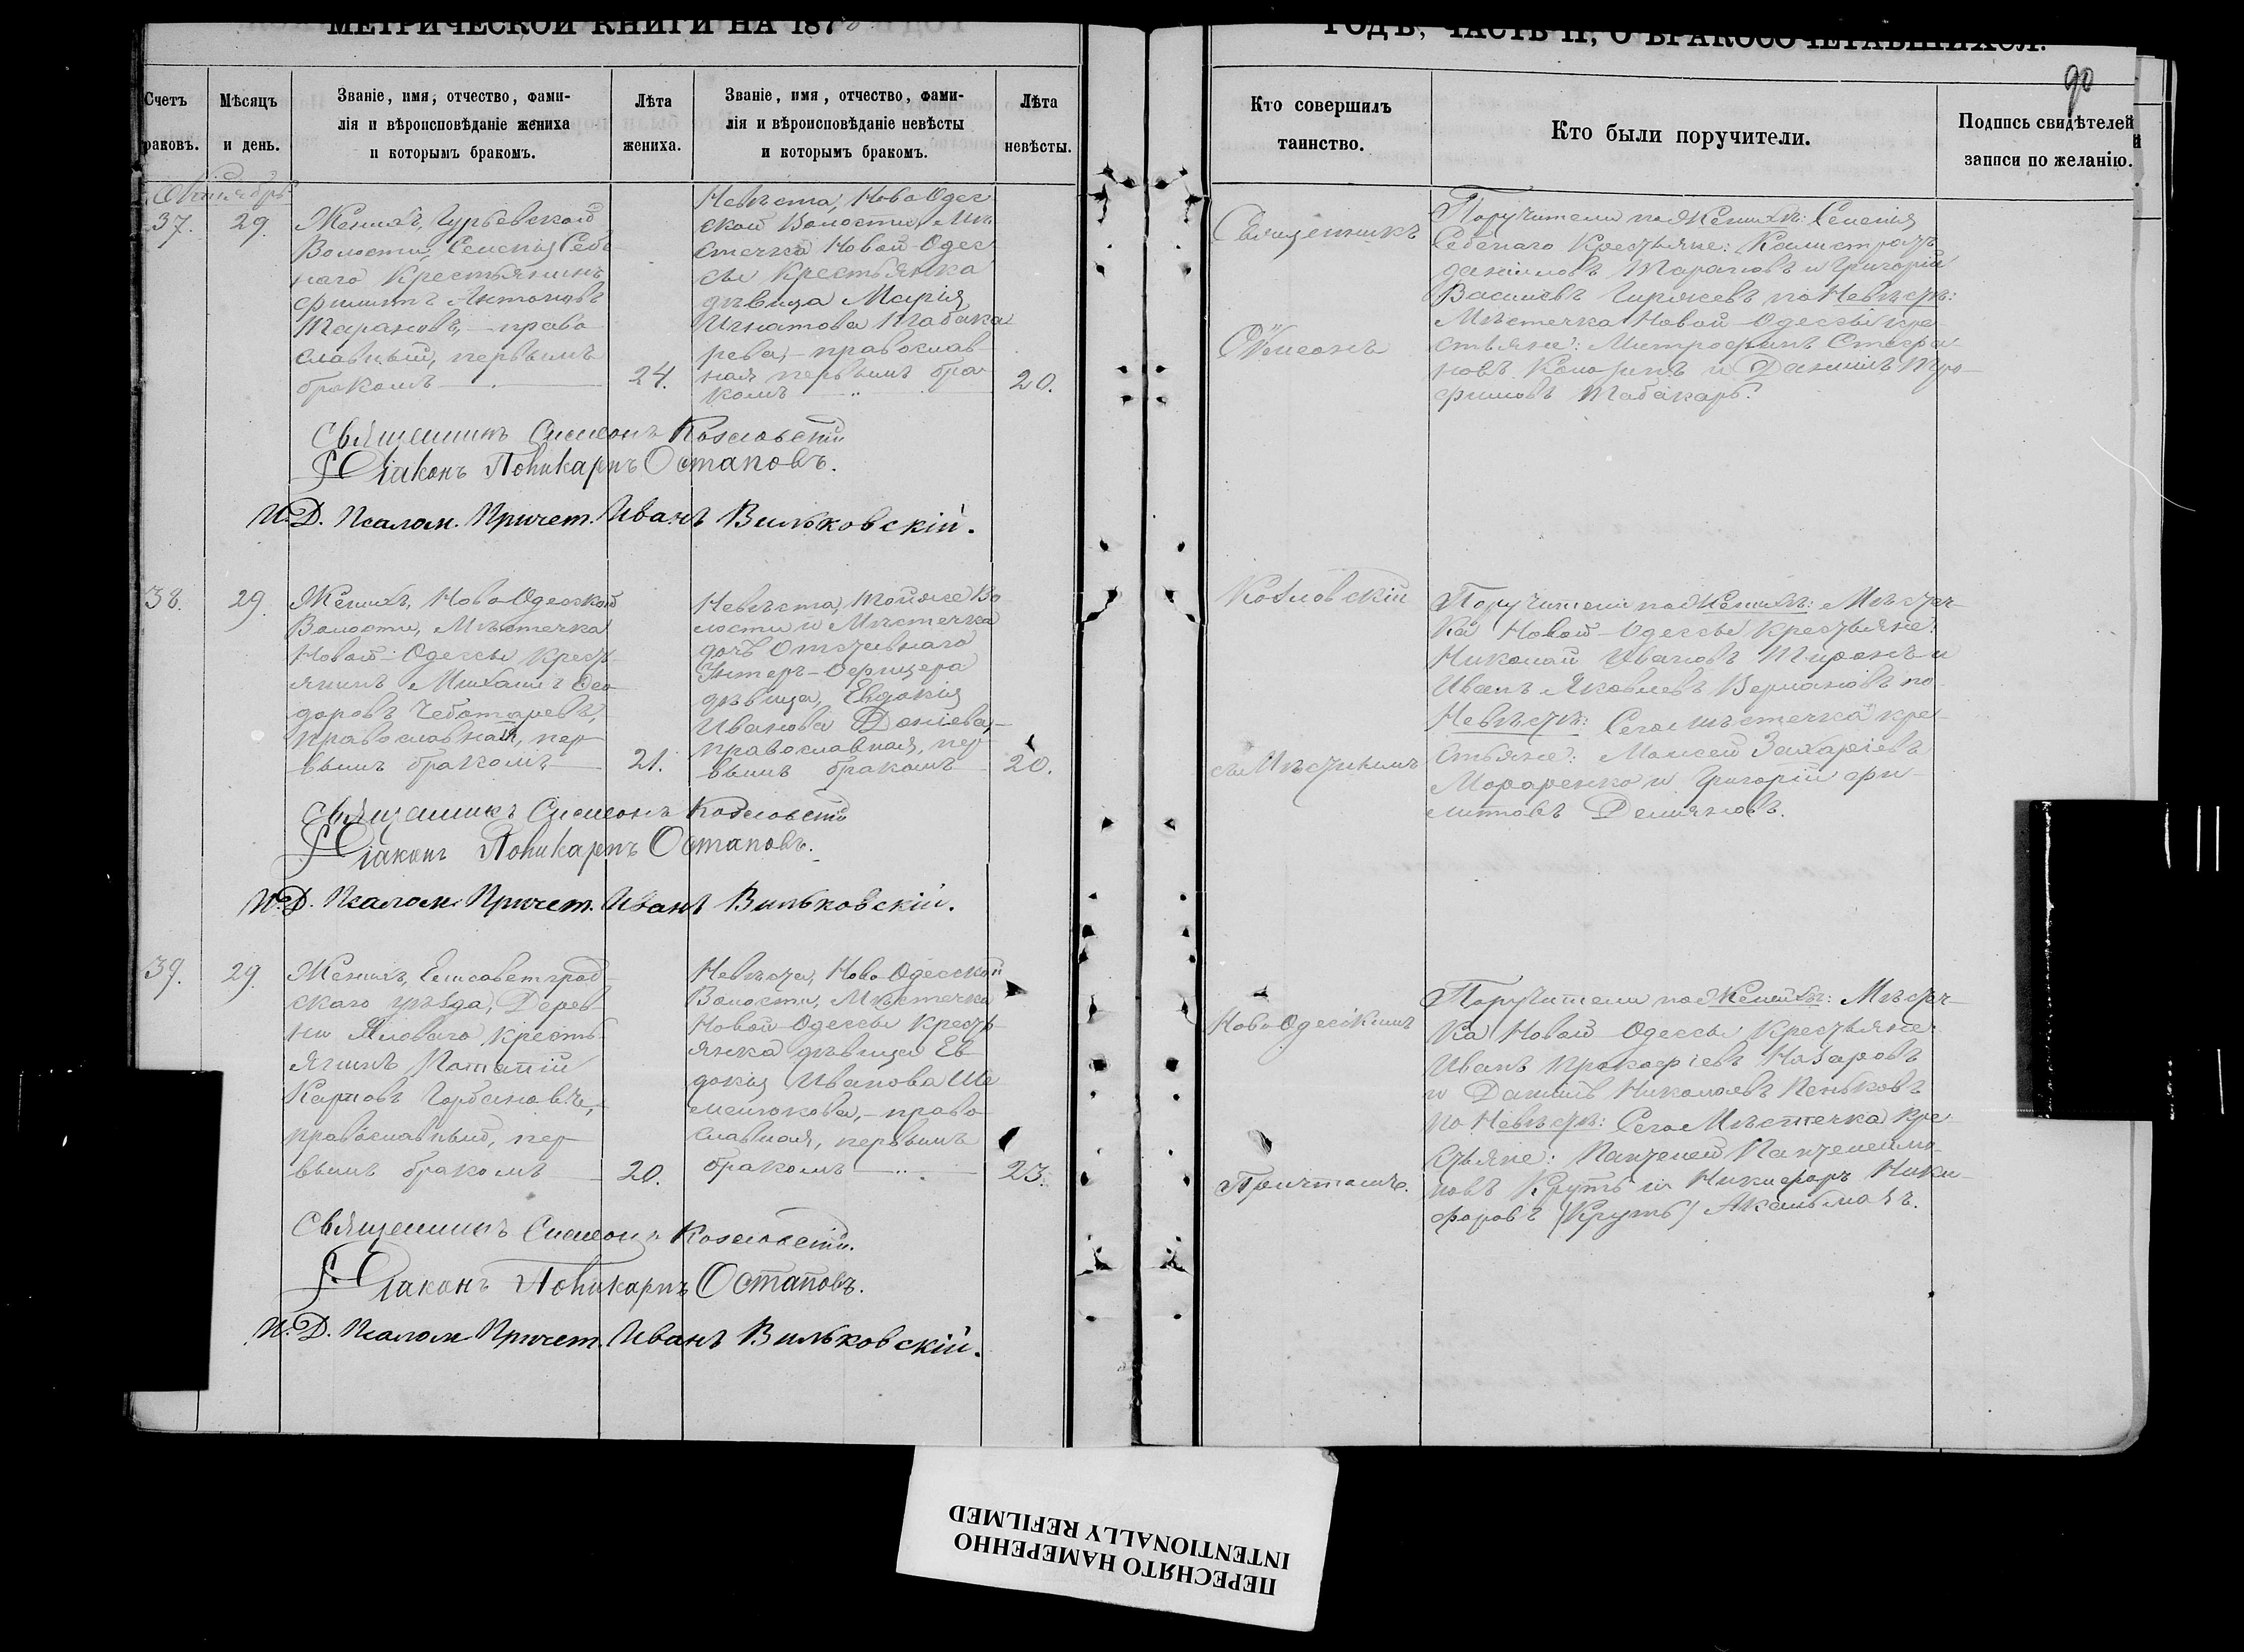 МЕТРИЧЕСКОЙ КНИГИ НА 187
ГОДЪ, ЧАСТЬ II, О БРАКОСОЧЕТАВШИХСЯ.
90
Счетъ
раковъ.
Мѣсяцъ
и день.
Званіе, имя, отчество, фами-
лія и вѣроисповѣданіе жениха
и которымъ бракомъ.
Лѣта
жениха.
Званіе, имя, отчество, фами-
лія и вѣроисповѣданіе невѣсты
и которымъ бракомъ.
Лѣта
невѣсты.
Кто совершилъ
таинство.
Кто были поручители.
Подпись свидѣтелей
записи по желанію.
Октябрь
37.
29.
Женихъ, Гурьевской
Волости, Селенія Себи-
наго Крестьянинъ
Филиппъ Антоновъ
Тарановъ, – право
славный, первымъ
бракомъ
24.
Невѣста, Ново Одес
ской Волости, Мѣ
стечка Новой-Одес
сы Крестьянка
дѣвица Марія
Игнатова Табака
рева, – православ-
ная первымъ бра
комъ
20.
Священникъ
Симеонъ
Поручители по Женихѣ: Селенія
Себинаго Крестьяне: Калистратъ
Даниловъ Тарановъ и Григорій
Васильевъ по Невѣстѣ:
Мѣстечка Новой Одессы кре-
стьяне: Митрофанъ Стефа-
новъ и Даниилъ Тро-
фимовъ Табакарь.
Священникъ Симеонъ Козловскій
Діаконъ Поликарпъ Остаповъ.
И.Д. Псалом. Причет. Иванъ Вильковскій.
38.
29.
Женихъ, Ново-Одесской
Волости, Мѣстечка
Новой-Одессы Крест-
янинъ Михаилъ Фео-
доровъ Чеботаревъ,
православный, пер-
вымъ бракомъ
21.
Невѣста, той же Во-
лости и Мѣстечка
дочь Отставнаго
Унтеръ-Офицера
дѣвица, Евдокія
Иванова Доніева,–
православная, пер-
вымъ бракомъ
20.
Козловскій
съ Мѣстнымъ
Поручители по Женихѣ: Мѣстеч-
ка Новой-Одессы Крестьяне:
Николай Ивановъ Тиронъ и
Иванъ Яковлевъ Вермановъ по
Невѣстѣ: Сего мѣстечка кре-
стьяне: Моисей Захаріевъ
Мораренко и Григорій Фи-
липовъ Демяновъ.
Священникъ Симеонъ Козловскій
Діаконъ Поликарпъ Остаповъ.
И.Д. Псалом. Причет. Иванъ Вильковскій.
39.
29.
Женихъ, Елисаветград-
скаго уѣзда, Дерев-
ни Яловаго Кресть-
янинъ Потапій
Карповъ Горбановъ,
православный, пер-
вымъ бракомъ
20.
Невѣста, Ново-Одесской
Волости, Мѣстечка
Новой-Одессы Крест-
янка дѣвица Ев-
докія Иванова Ше
мелюкова, – право-
славная, первымъ
бракомъ
23.
Ново-Одесскимъ
Причтомъ.
Поручители по Женихѣ: Мѣстеч-
ка Новой Одессы Крестьяне:
Иванъ Прокофіевъ Назаровъ
и Даниилъ Николаевъ Пеньковъ
по Невѣстѣ: Сего Мѣстечка Кре-
стьяне: Пантелей Пантелеймо-
новъ Крутъ и Никифоръ Ники-
форовъ (Крутъ)
Священникъ Симеонъ Козловскій.
Діаконъ Поликарпъ Остаповъ.
И.Д. Псалом Причет. Иванъ Вильковскій.
ПЕРЕСНЯТО НАМЕРЕННО
INTENTIONALLY REFILMED